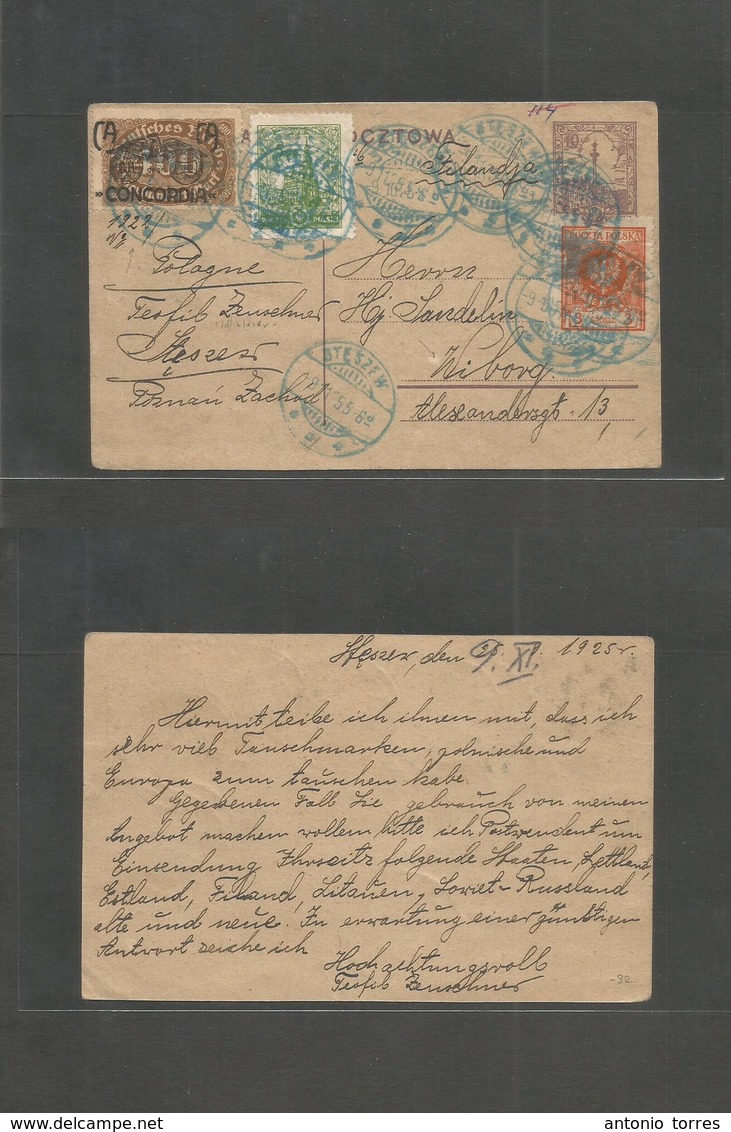 Deutsches Reich
CA CA
»CONCORDIA«
POCZTOWA
Finlandja
10
POCZTA POLSKA
1922
STĘSZEW
Pologne
Teofil Zenschner
Stęszew
Poznań Zachod
Herrn
Hj Sandelin
Wiborg.
Alexandersgt. 13
STĘSZEW
Stęszew, den 9. XI. 1925 r.
Hiermit teile ich ihnen mit, dass ich
sehr viel Tauschmarken, polnische und
Europa zum tauschen habe.
Gegebenen Fall Sie gebrauch von meinen
Angebot machen wollem bitte ich Postwendent um
Einsendung Ihrseitz folgende Staaten, Lettland,
Estland, Finland, Litauen, Soviet-Russland
alte und neue. In erwartung einer günstigen
Antwort zeiche ich
Hochachtungsvoll
Teofil Zenschner
-32
delcampe.net
antonio torres